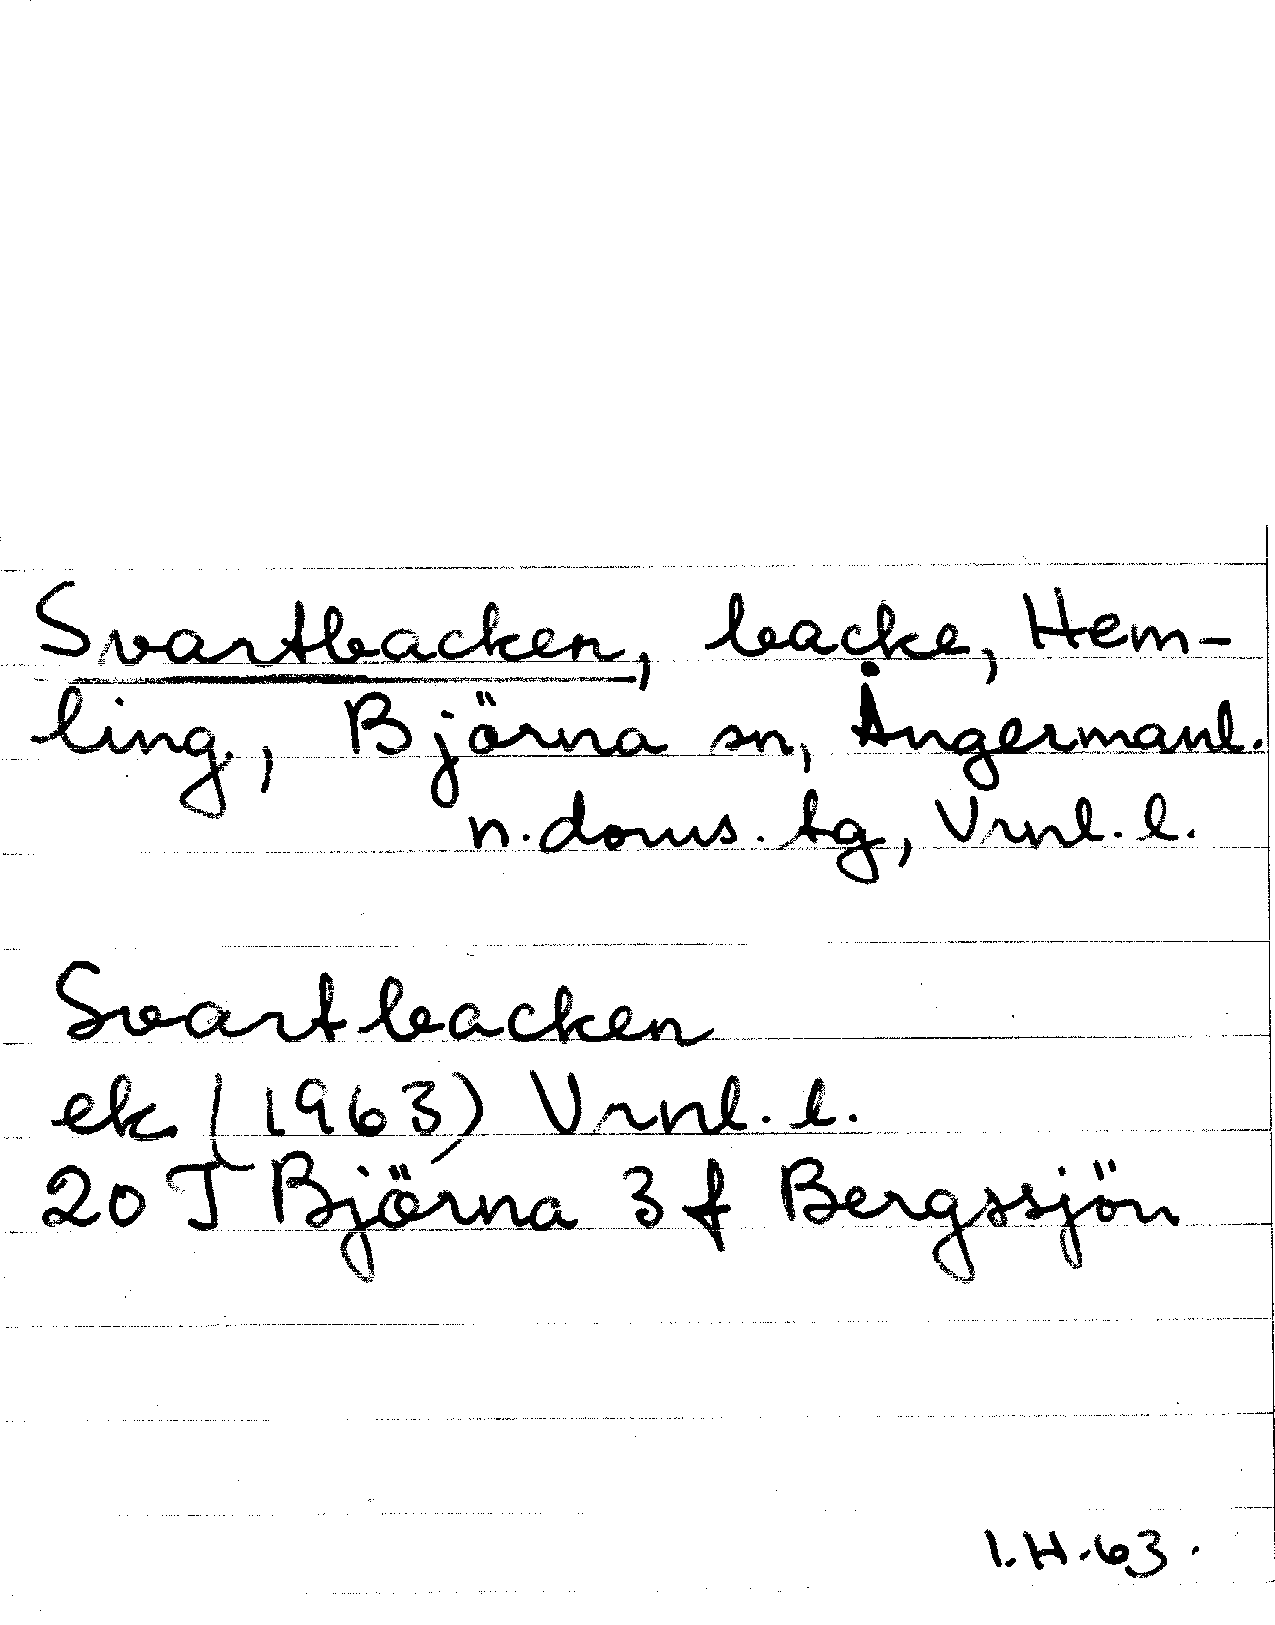 Svartbacken, backe, Hem-
ling, Björna sn, Ångermanl.
n. doms. tg, Vrnl. l.
Svartbacken
ek (1963) Vrnl. l.
20 J Björna 3 f Bergssjön
I. H. 63.